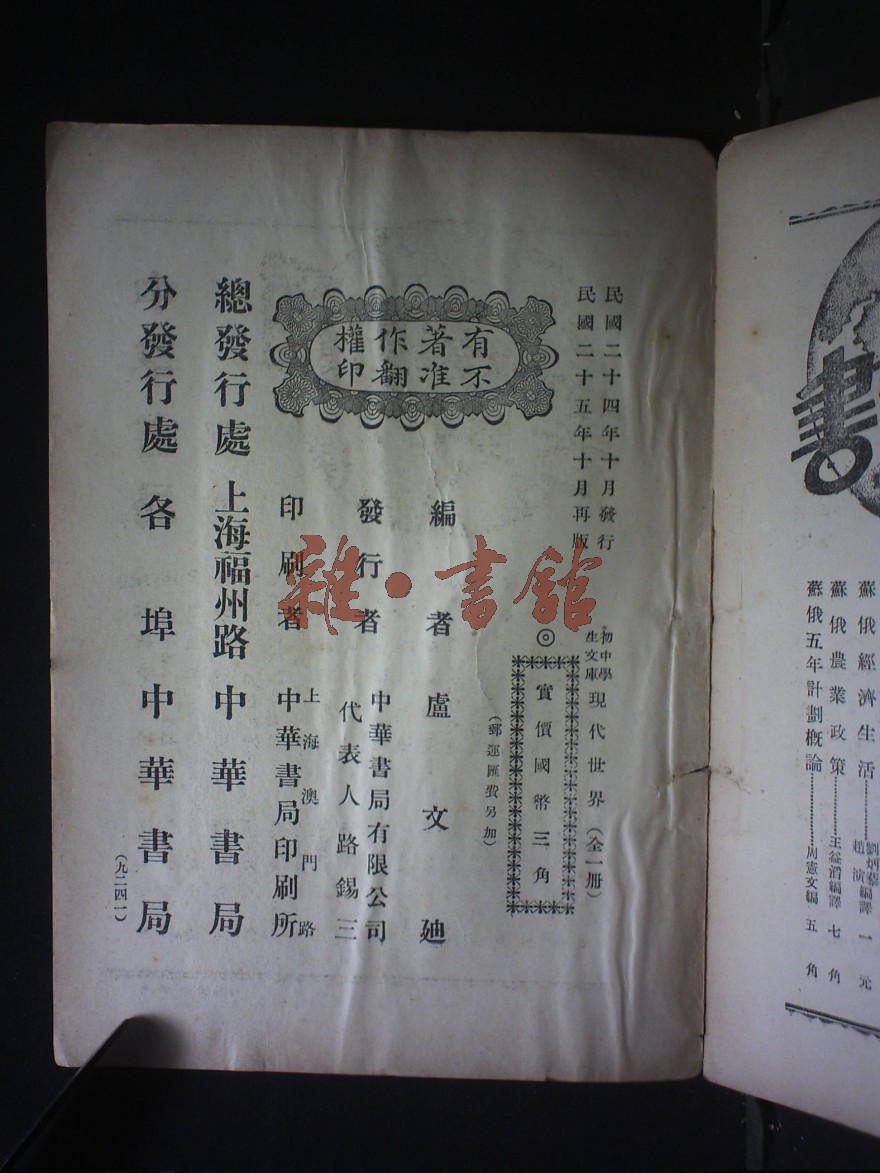 民國二十四年十月發行
民國二十五年十月再版
初中學生文庫現代世界（全一册）
◎實價國幣三角
（郵運匯費另加）
有著作權
不准翻印
編者盧文廸
發行者中華書局有限公司
代表人路錫三
印刷者上海澳門路
中華書局印刷所
總發行處上海福州路中華書局
分發行處各埠中華書局
（九二四一）
雜·書館
書
蘇俄經濟生活……劉炳藜趙演編譯一元
蘇俄農業政策……王益滔編譯七角
蘇俄五年計劃概論……周憲文編五角